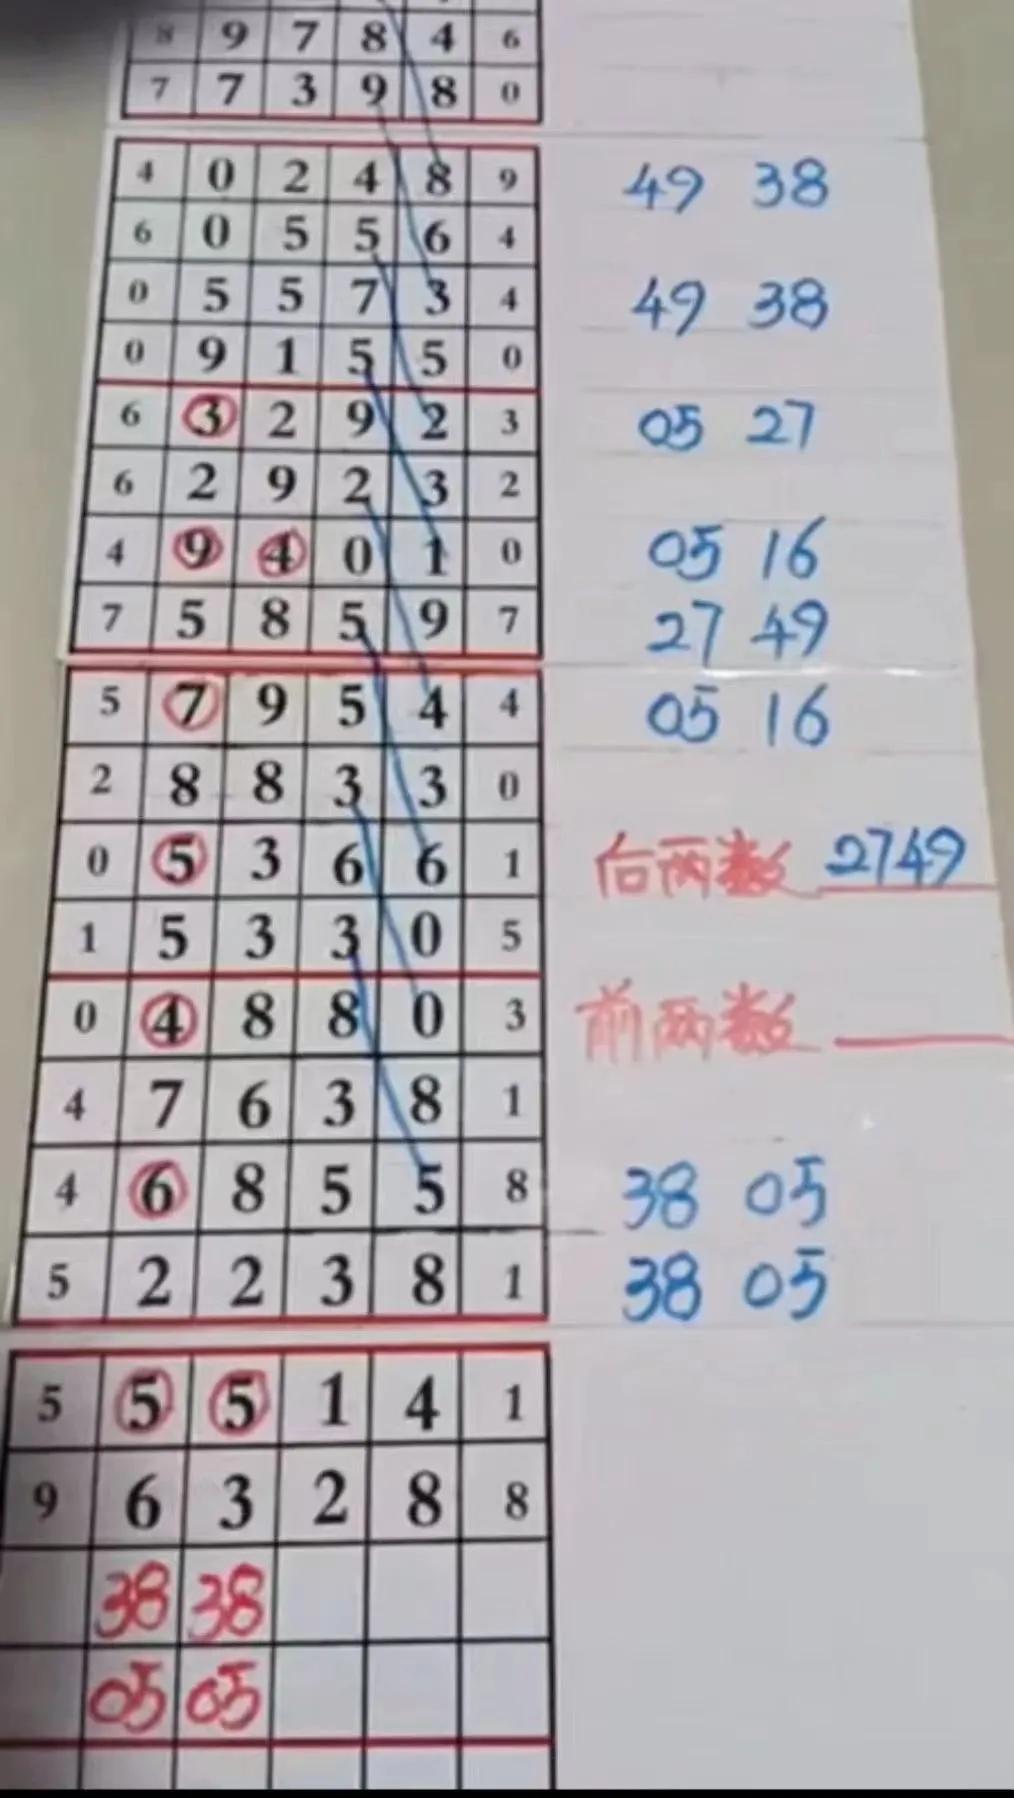 8 9 7 8 4 6
7 7 3 9 8 0
4 0 2 4 8 9 49 38
6 0 5 5 6 4
0 5 5 7 3 4 49 38
0 9 1 5 5 0
6 3 2 9 2 3 05 27
6 2 9 2 3 2
4 9 4 0 1 0 05 16
7 5 8 5 9 7 27 49
5 7 9 5 4 4 05 16
2 8 8 3 3 0
0 5 3 6 6 1 后两数 2749
1 5 3 3 0 5
0 4 8 8 0 3 前两数
4 7 6 3 8 1
4 6 8 5 5 8 38 05
5 2 2 3 8 1 38 05
5 5 5 1 4 1
9 6 3 2 8 8
38 38
05 05